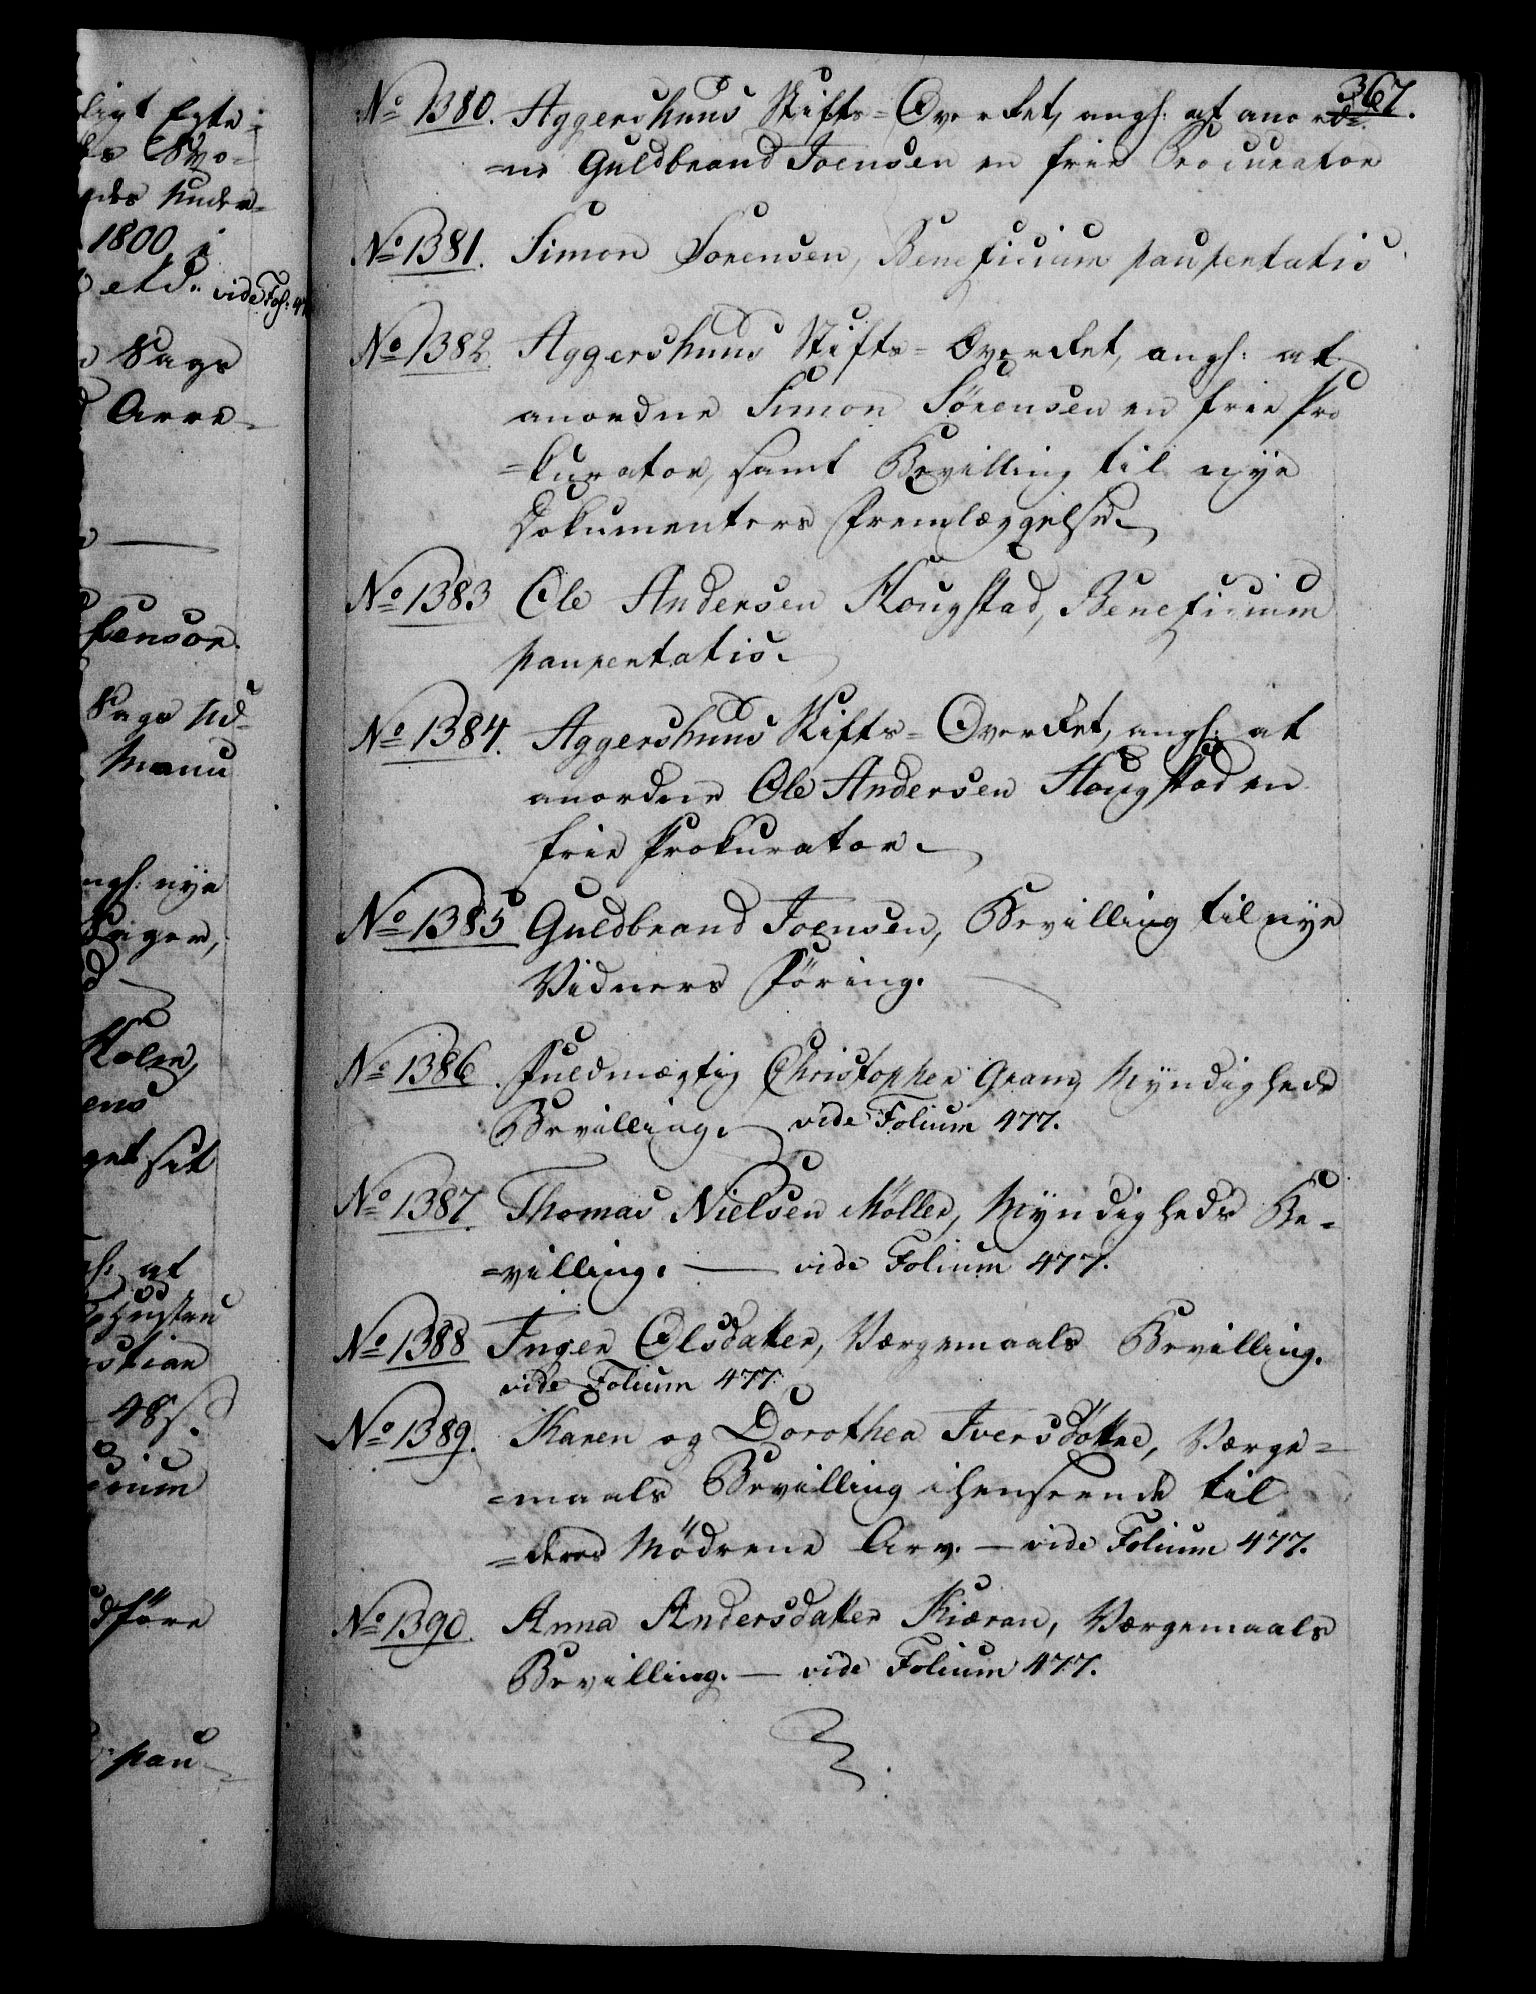 ligt Egte-
1800
etc. vide Fol: 47
Sags
Arre-
fensor.
Sags Ud-
Manu
angl: nye
Sager,
Holm,
ens
get sit
at
stian
48 s.
cium
dföre
pau-
367.
No 1380. Aggershuus Stifts=Overret, angl: at anord-
=ne Guldbrand Joensen en frie Procurator
No 1381. Simon Sørensen, Beneficium paupertatis
No 1382. Aggershuus Stifts=Overret, angl: at
anordne Simon Sörensen en frie Pro
=kurator, samt Bevilling til nye
Dokumenters Fremlæggelse.
No 1383 Ole Andersen Hougstad, Beneficium
paupertatis.
No 1384. Aggershuus Stifts=Overret, angl: at
anordne Ole Andersen Hougstad en
frie Prokurator.
No 1385 Guldbrand Joensen, Bevilling til nye
Vidners Föring.
No 1386. Fuldmægtig Christopher Gram, Myndigheds
Bevilling. vide Folium 477.
No 1387. Thomas Nielsen Möller, Myndigheds Be-
=villing. — vide Folium 477.
No 1388 Inger Olsdatter, Værgemaals Bevilling.
vide Folium 477.
No 1389. Karen og Dorothea Iversdøttre, Værge=
=maals Bevilling ihenseende til
=deres Mödrene Arv. — vide Folium 477.
No 1390. Anna Andersdatter Kiæran, Værgemaals
Bevilling. — vide Folium 477.